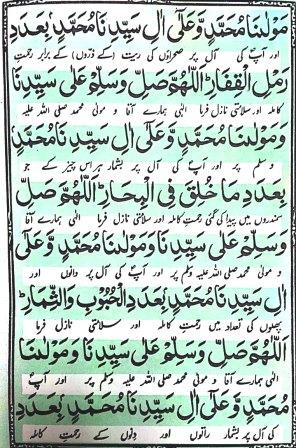 مَوْلٰنَا مُحَمَّدٍ وَّعَلٰٓى اٰلِ سَيِّدِنَا مُحَمَّدٍۢ بِعَدَدِ
اور آپؐ کی آل پر صحراؤں کی ریت (کے ذروں) کے برابر رحمتِ
رَمْلِ الْقِفَارِ ۞ اَللّٰهُمَّ صَلِّ وَسَلِّمْ عَلٰى سَيِّدِنَا
کاملہ اور سلامتی نازل فرما الٰہی ہمارے آقا و مولٰی محمد صلی اللہ علیہ
وَمَوْلٰنَا مُحَمَّدٍ وَّعَلٰٓى اٰلِ سَيِّدِنَا مُحَمَّدٍۢ
وسلم پر اور آپؐ کی آل پر بشمار ہر اس چیز کے جو
بِعَدَدِ مَا خُلِقَ فِى الْبِحَارِ ۞ اَللّٰهُمَّ صَلِّ
سمندروں میں پیدا کی گئی رحمتِ کاملہ اور سلامتی نازل فرما الٰہی ہمارے آقا
وَسَلِّمْ عَلٰى سَيِّدِنَا وَمَوْلٰنَا مُحَمَّدٍ وَّعَلٰٓى
و مولٰی محمد صلی اللہ علیہ وسلم پر اور آپؐ کی آل پر دانوں اور
اٰلِ سَيِّدِنَا مُحَمَّدٍۢ بِعَدَدِ الْحُبُوْبِ وَالثِّمَارِ ۞
پھلوں کی تعداد میں رحمتِ کاملہ اور سلامتی نازل فرما
اَللّٰهُمَّ صَلِّ وَسَلِّمْ عَلٰى سَيِّدِنَا وَمَوْلٰنَا
الٰہی ہمارے آقا و مولٰی محمد صلی اللہ علیہ وسلم پر اور آپؐ
مُحَمَّدٍ وَّعَلٰٓى اٰلِ سَيِّدِنَا مُحَمَّدٍۢ بِعَدَدِ
کی آل پر بشمار راتوں اور دنوں کے رحمتِ کاملہ